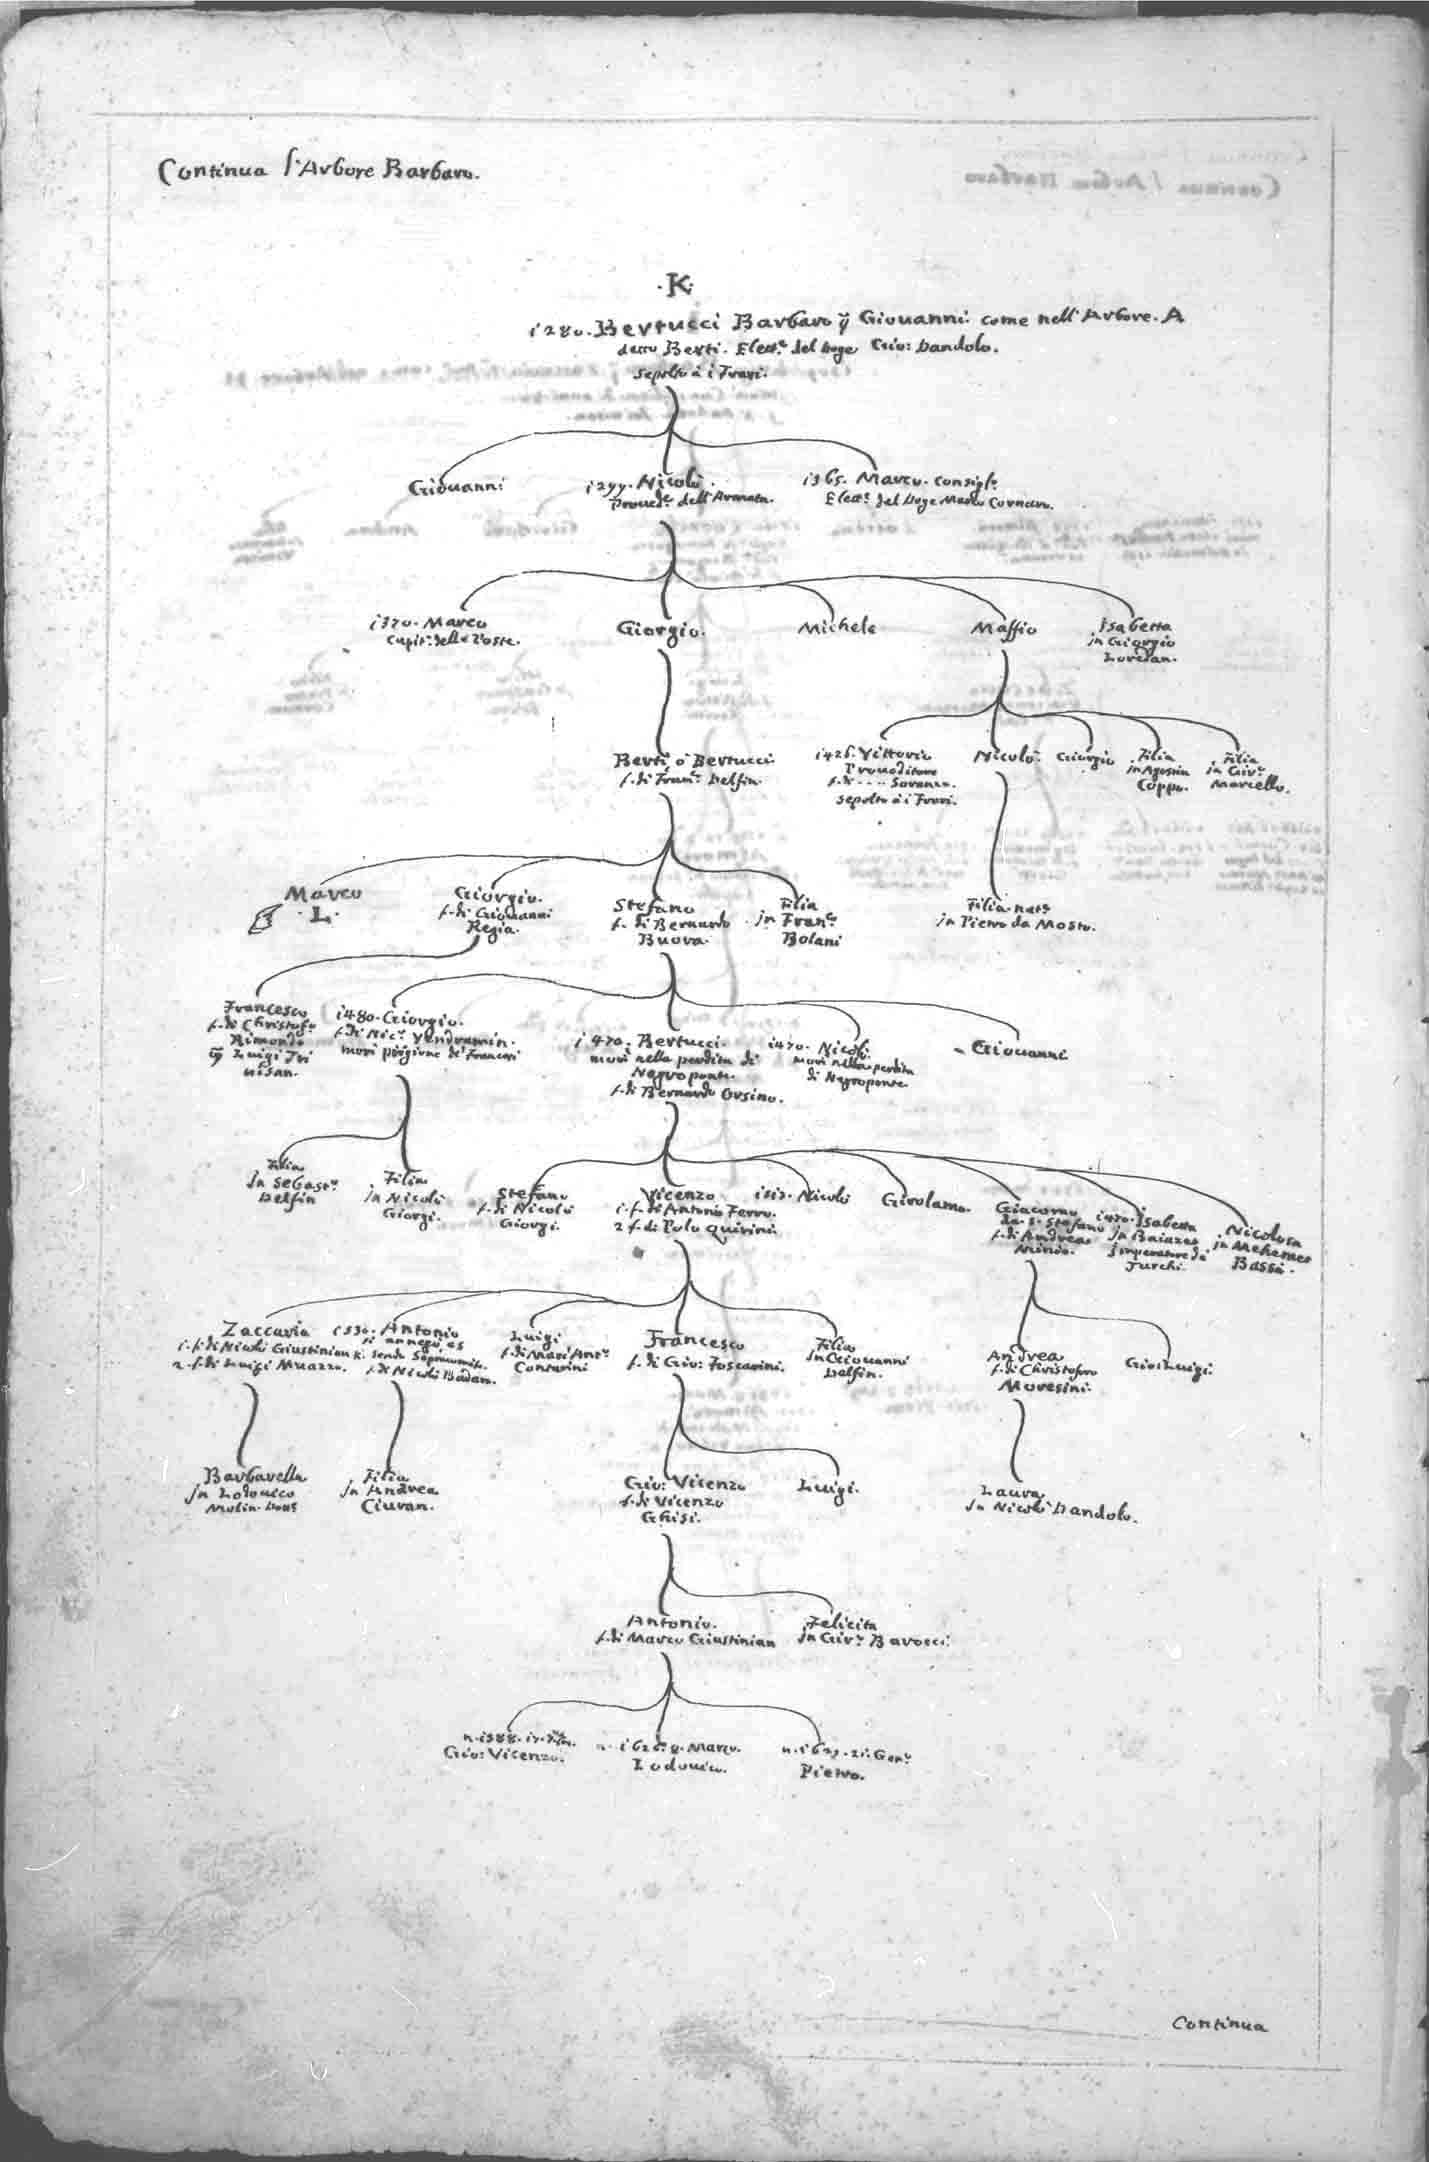 Continua l'Arbore Barbaro.
.K.
1280. Bertucci Barbaro q Giovanni come nell'Arbore. A
detto Berti. Elett.r del Doge Gio: Dandolo.
Sepolto à i Frari.
Giouanni
1299. Nicolò
Proued.r dell'Armata.
1365. Marco. Consigl.r
Elett.r del Doge Marco Cornaro.
1370. Marco
Capit. delle Poste.
Giorgio.
Michele
Maffio
Isabetta
in Giorgio
Loredan.
Berti ò Bertucci
f. di Fran.co Delfin.
1426. Vittorio
Proueditore
f. di .... Soranzo.
sepolto à i Frari.
Nicolò
Giorgio
Filia
in Agostin
Coppo.
Filia
in Gio:
Marcello.
Marco
. L .
Giorgio.
f. di Giouanni
Regia.
Stefano
f. di Bernardo
Buora.
Filia
in Fran.co
Bolani
Filia nat.e
in Pietro da Mosto.
Francesco
f. di Christof.o
Rimondo
q Luigi Tri
uisan.
1480. Giorgio.
f. di Nic.o Vendramin.
morì prigione de Francesi
1470. Bertucci.
morì nella perdita di
Negroponte.
f. di Bernardo Orsino.
1470. Nicolò
morì nella perdita
di Negroponte.
Giouanni
Filia
in Sebast.o
Delfin
Filia
in Nicolò
Giorgi.
Stefano
f. di Nicolò
Giorgi.
Vicenzo
1. f. di Antonio Ferro.
2 f. di Polo Quirini.
1517. Nicolò
Girolamo.
Giacomo
da S. Stefano
f. di Andrea
Minio.
1470. Isabetta
in Baiazet
Imperatore de
Turchi.
Nicolosa
in Mehemet
Bassà.
Zaccaria
1. f. di Nicolò Giustinian
2. f. di Luigi Muazzo.
1530. Antonio
si annegò, es
sendo Sopracomito.
f. di Nicolò Badoer.
Luigi
f. di Marc'Ant.o
Contarini
Francesco
f. di Gio: Foscarini.
Filia
in Giouanni
Delfin.
Andrea
f. di Christoforo
Moresini.
Gio: Luigi.
Barbarella
in Lodouico
Molin
Filia
in Andrea
Ciuran.
Gio: Vicenzo
f. di Vicenzo
Ghisi.
Luigi.
Laura
in Nicolò Dandolo.
Antonio.
f. di Marco Giustinian
Felicita
in Gio: Barocci.
n. 1588. 17.
Gio: Vicenzo.
n. 1626. 9. Marzo.
Lodouico.
n. 1629. 21. Gen.o
Pietro.
Continua